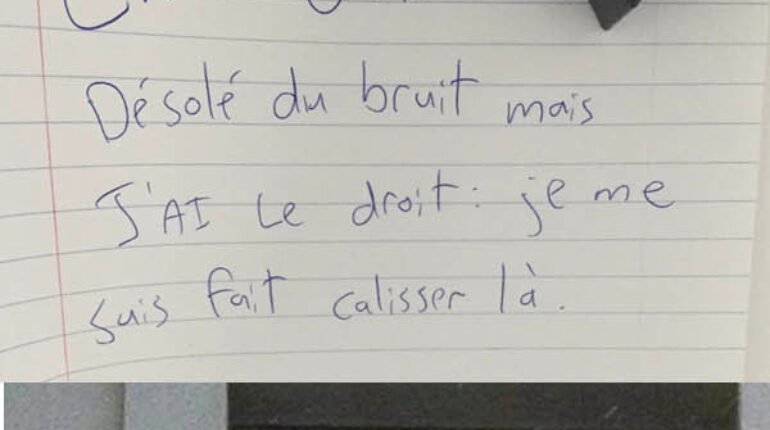 Désolé du bruit mais
J'AI Le droit : je me
suis fait calisser là.